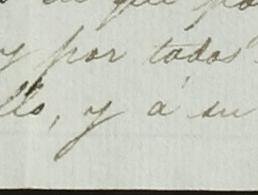 de que po
y por todos
llo, y á su